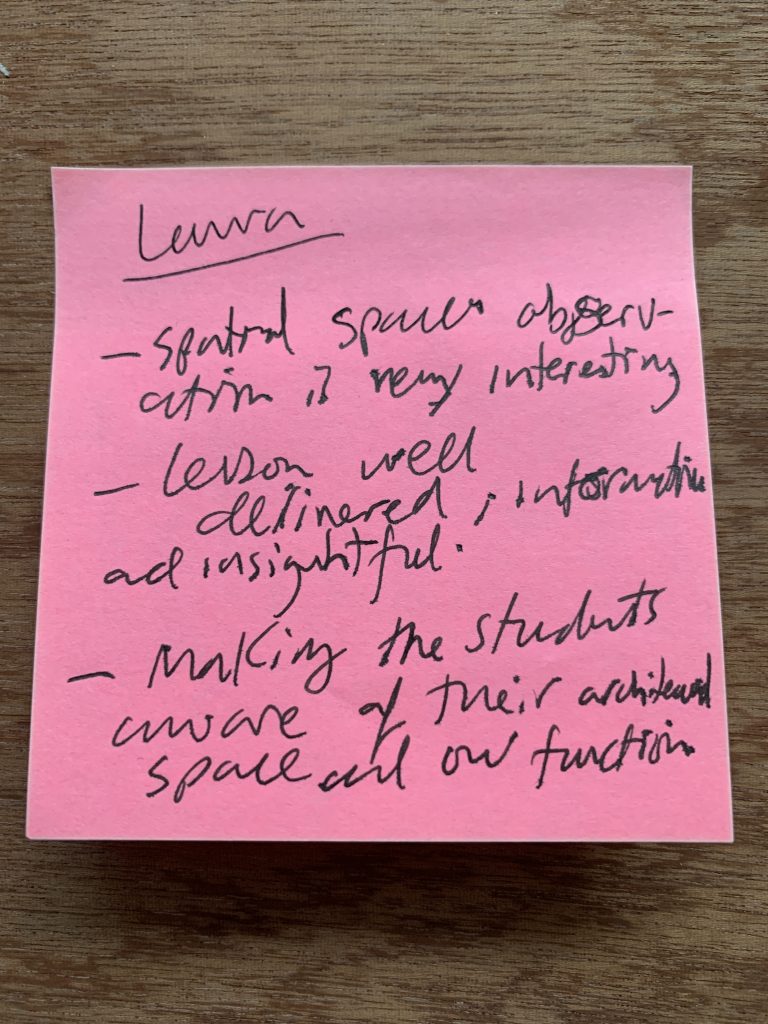 Laura
– spatial spaces observ-
ation is very interesting
– Lesson well
delivered, informative
ad insightful.
– Making the students
aware of their architectural
space and our function